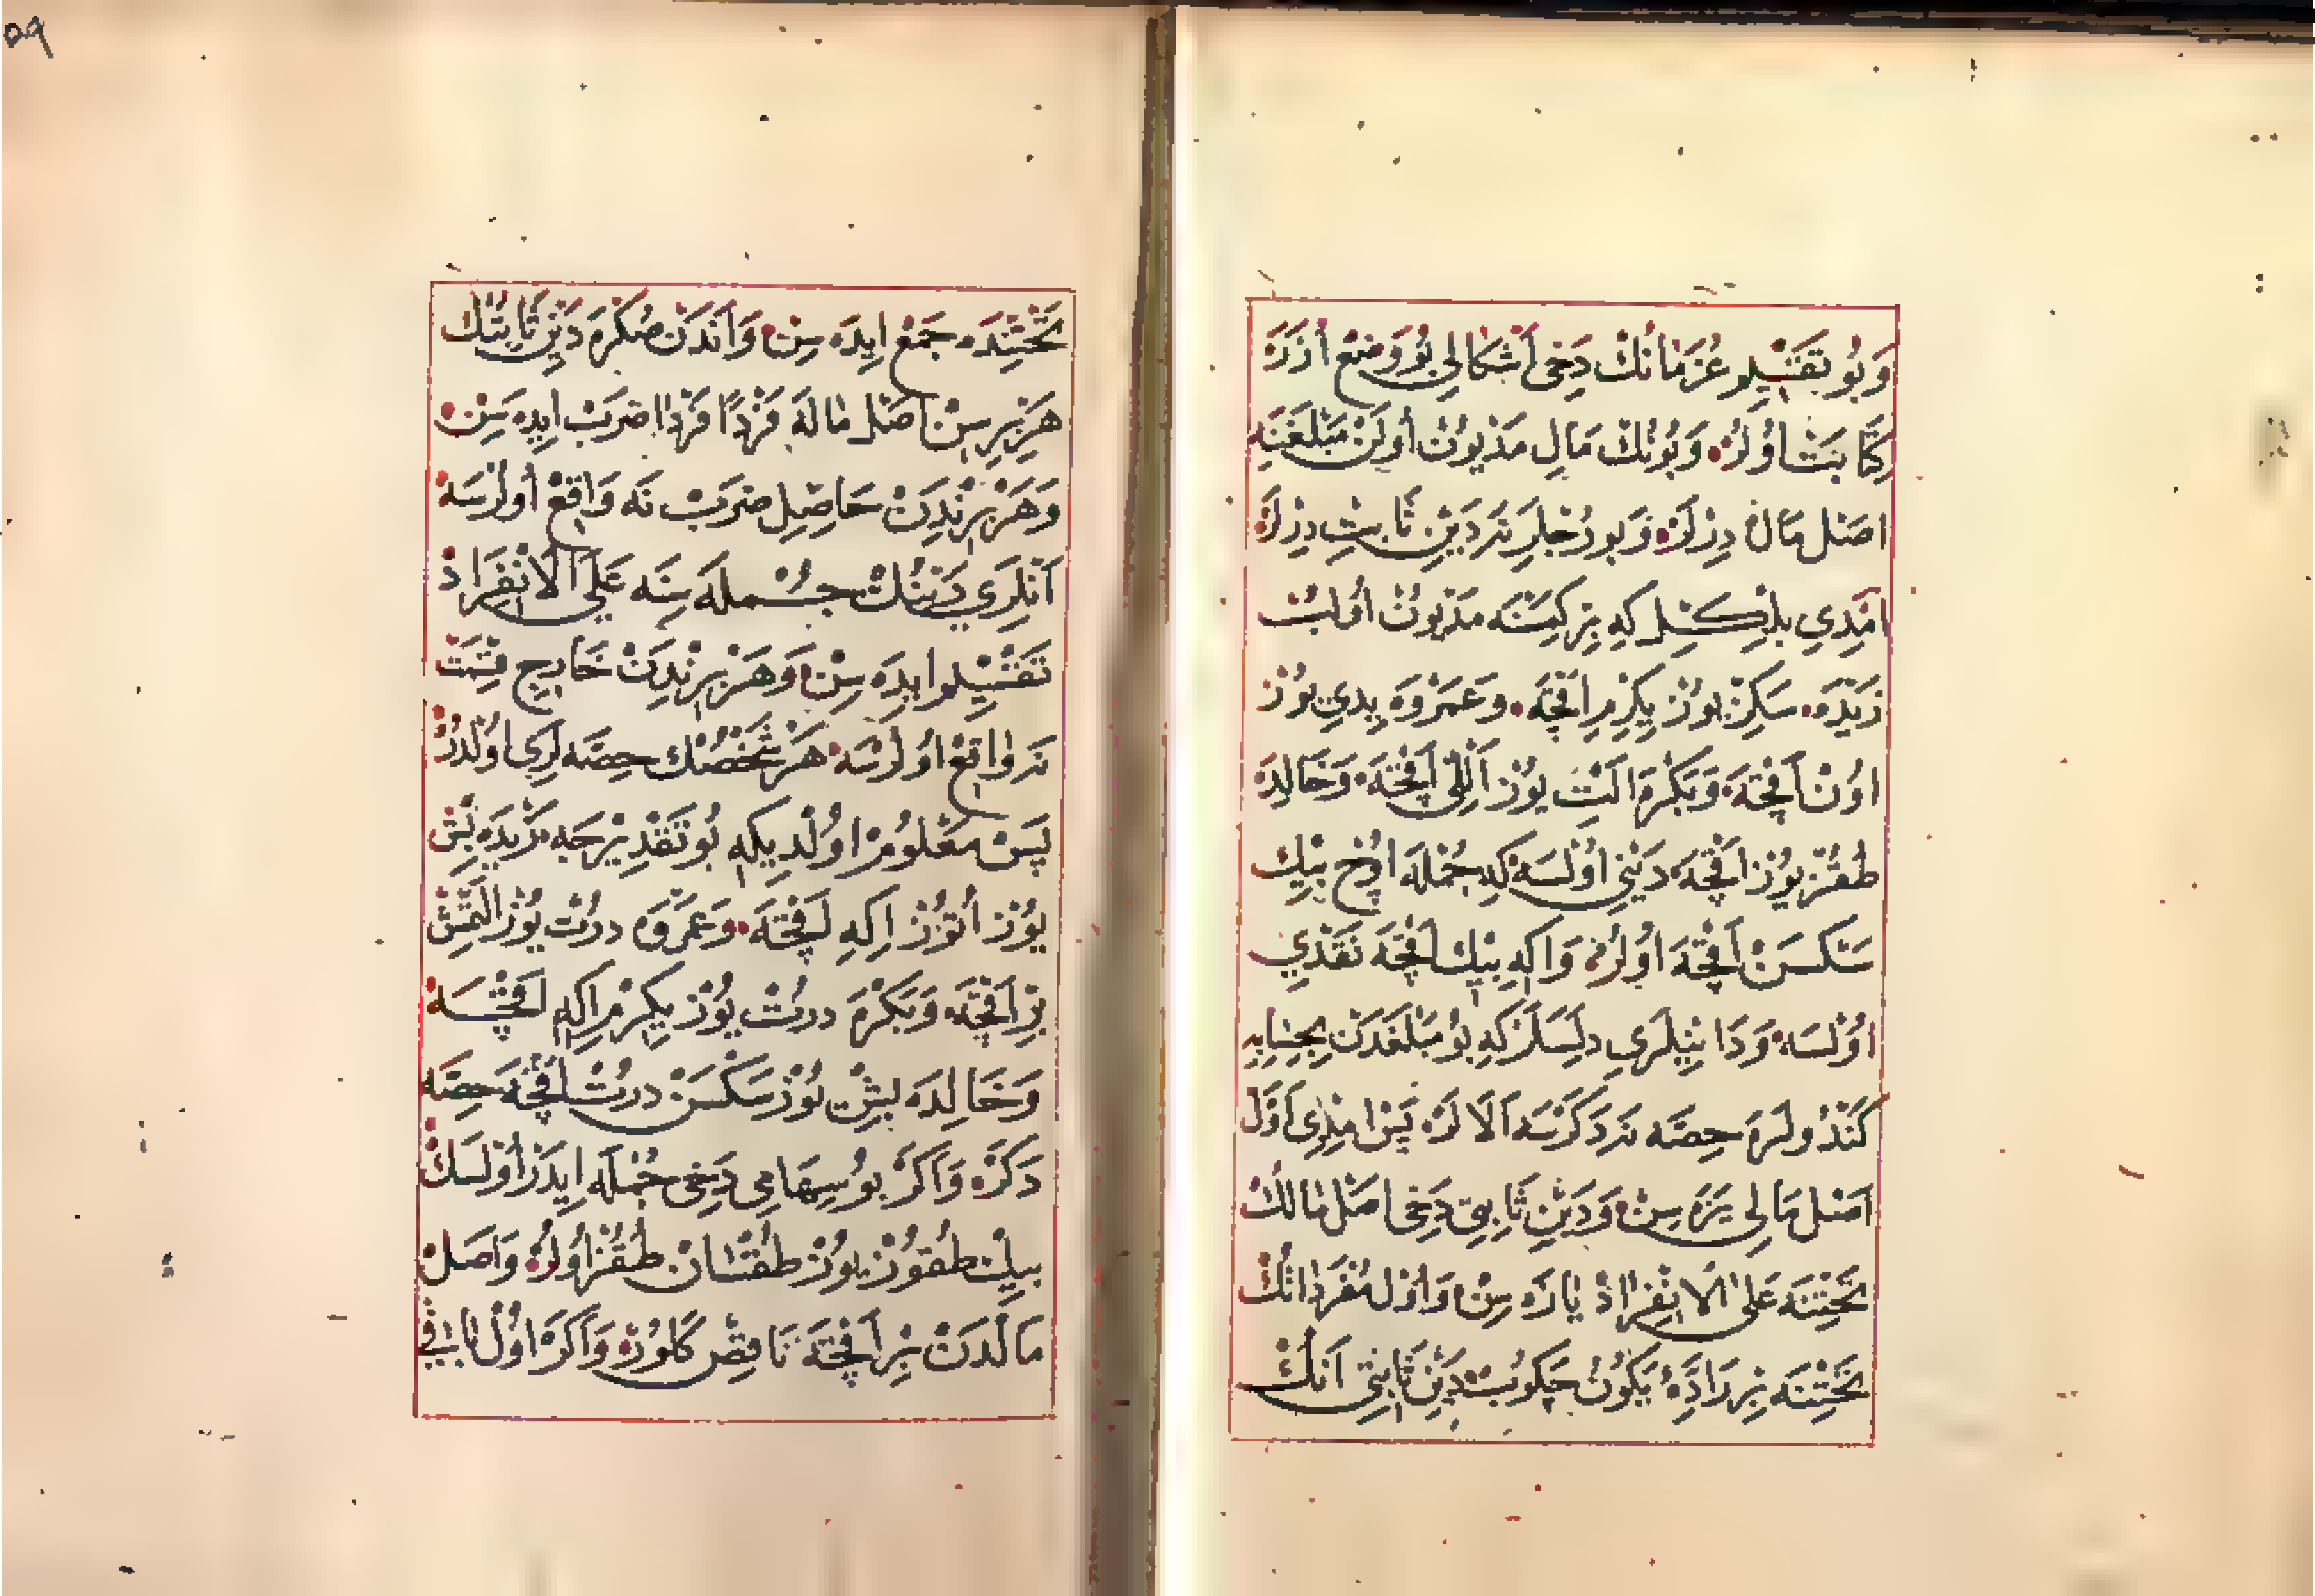 وَبُو تَقْسِيمِ غُرَمَانُكْ دَخِى اَشْكَالِى بُو وَضِعْ اُزَرَهْ
كِتَابَتْ اُولُرْ وَبُونُكْ مَالِ مَدْيُونْ اُولَنْ مَبْلَغَنَه
اصَلْ مَالْ دِرْلَرْ وَبُورُجْلَرِنَه دَيْنِ ثَابِتْ دِرْلَرْ
اِمْدِى بِلْكِلْ كِه بِرْ كِمْسَنَه مَدْيُونْ اُولُبْ
زَيْدَه سَكِزْ يُوزْ يِكِرْمِ اَقْچَه وَعَمْرُوَه يِدِى يُوزْ
اوُنْ اَقْچَه وَبَكْرَه اَلْتِ يُوزْ اَللِّى اَقْچَه وَخَالِدَه
طُقُزْ يُوزْ اَقْچَه دَيْنِى اُولْسَه كِه جُمْلَه اُوچْ بِيْكْ
سَكْسَنْ اَقْچَه اوُلُرْ وَاِكِه بِيْكْ اَقْچَه نَقْدِى
اوُلْسَه وَدَايِنْلَرِى دِلَسَلَرْ كِه بُو مَبْلَغْدَنْ بِحِسَابِه
كَنْدُولَرَه حِصَّه نَه دَكَرْسَه اَلَالَرْ پَسْ اِمْدِى اَوَّلْ
اَصْلِ مَالِى يَزَه سِنْ وَدَيْنِ ثَابِتِى دَخِى اصَلْ مَالُكْ
تَحْتِنَه عَلَى الْاِنْفِرَادْ يَازَه سِنْ وَاوُلْ مُفْرَدَاتُكْ
تَحْتِنَه بِرْ مَدَّه ... چَكُوبْ دَيْنِ ثَابِتِى اَنُكْ
تَحْتِنْدَه جَمْعْ اِيدَه سِنْ وَاَنْدَنْ صُكْرَه دَيْنِ ثَابِتُكْ
هَرْ بِرِسِنْ اَصْلِ مَالَه فَرْدًا فَرْدًا ضَرَبْ اِيدَه سِنْ
وَهَرْ بِرِنْدَنْ حَاصِلِ ضَرَبْ نَه وَاقِعْ اُولُرْسَه
اَنْلَرِى دَيْنُكْ جُمْلَه سِنَه عَلَى الْاِنْفِرَادْ
تَقْسِيمْ اِيدَه سِنْ وَهَرْ بِرِنْدَنْ خَارِجِ قِسْمَتْ
نَه وَاقِعْ اوُلُرْسَه هَرْ شَخْصُكْ حِصَّه لَرِى اوُلْدُرْ
پَسْ مَعْلُومْ اوُلْدِيكِه بُو تَقْدِيرْجَه زَيْدَه بَشْ
يُوزْ اُتُوزْ اِكِه اَقْچَه وَعَمْرُوَه دُرْتْ يُوزْ اَلْتْمِشْ
بِرْ اَقْچَه وَبَكْرَه دُرْتْ يُوزْ يِكِرْمِ اِكِه اَقْچَه
وَخَالِدَه بَشْ يُوزْ سَكْسَنْ دُرْتْ اَقْچَه حِصَّه
دَكَرْ وَاَكَرْ بُو سِهَامِى دَخِى جُمْلَه اِيدَرْ اوُلْسَكْ
بِيْكْ طُقُوزْ يُوزْ طُقْسَانْ طُقُزْ اوُلُرْ وَاصَلْ
مَالْدَنْ بِرْ اَقْچَه نَاقِصْ كَلُورْ وَاَكَرْ اوُلْ بَاقِى